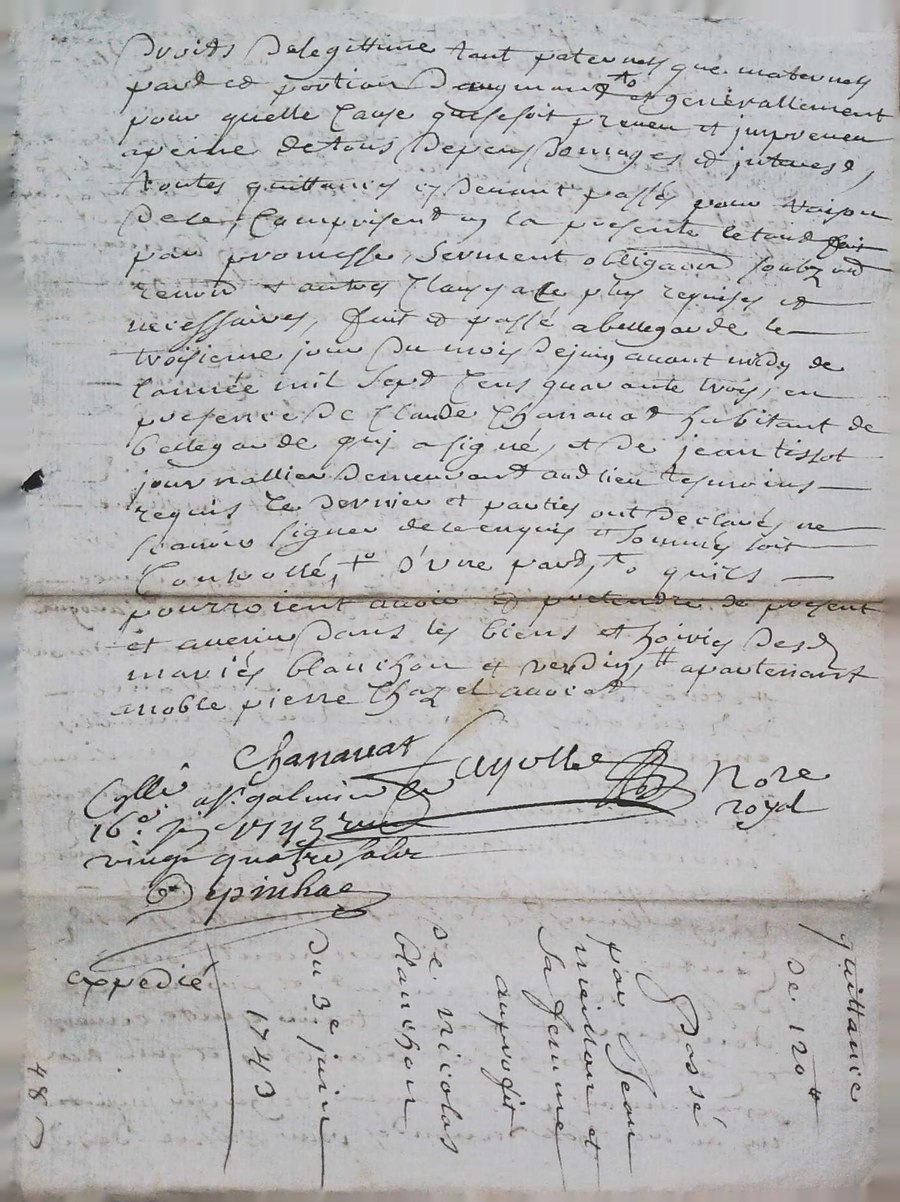 droits delegittime tant paternels que maternels
part et portion daugmant to et generallement
pour quelle cause quecesoit preveu et impreveu
apeine detous depens domages et interest,
toutes quittances cydevant passés pour raison
dece, comprises en la presente letout fait
par promesse, serment obligaon soubz
renon et autres clauses ale plus requises et
necessaires, fait et passé abellegarde le
troisieme jour du mois dejuin avant midy de
lannée mil sept cens quarante trois, en
presence de Claude Charravat habitant de
bellegarde qui a signé, et de jean tissot
journallier demeurant aud lieu tesmoins
requis le dernier et parties ont declarés ne
scavoir signer de ce enquis et sommés soit
Controllé, to d'une part, to quils
pourroient avoir et pretendre de present
et avenir dans les biens et hoiries desd
mariés blanchon et verdin, tt apartenant
anoble pierre Chazel avocat
Charravat
Fayolle
Nore
royal
Cllé a St galmier le
16e juin 1743 reçu
vingt quatre sols
Depinhac
expedié
quittance
de 120 tt
Passé
par Jean
et
sa femme
auprofit
de nicolas
blanchon
du 3e juin
1743
48